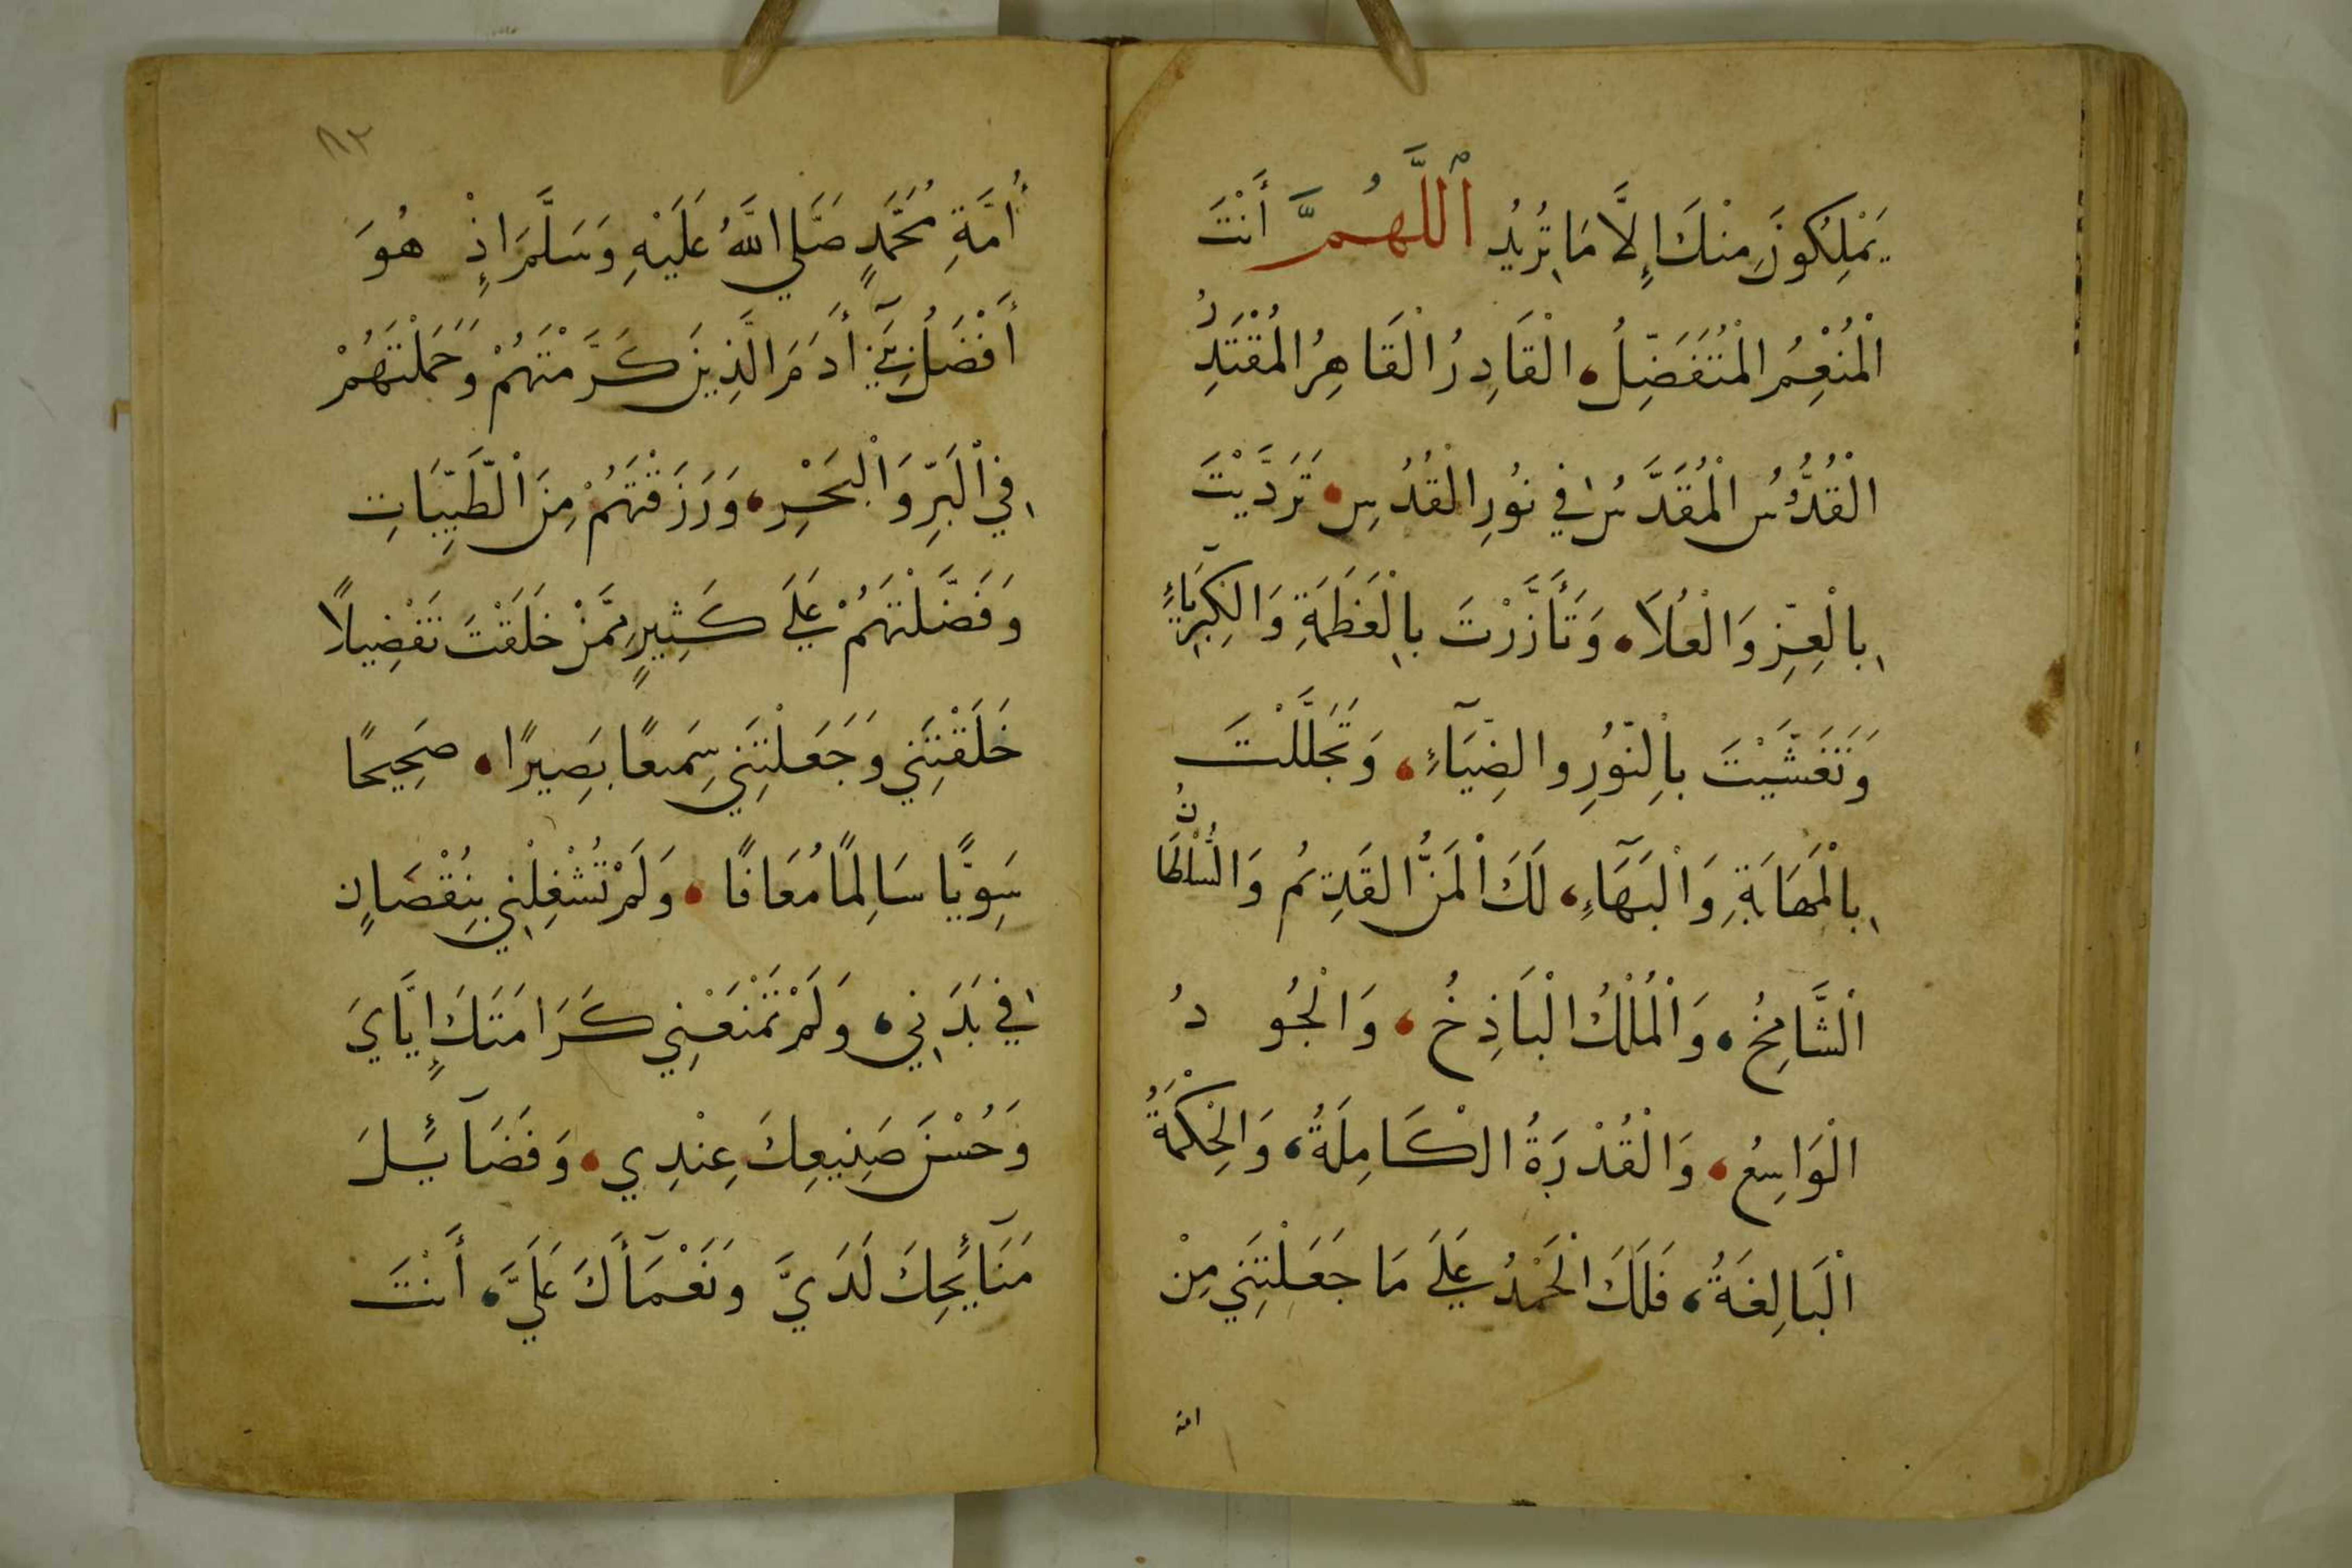 يَمْلِكُونَ مِنْكَ إِلَّا مَا تُرِيدُ اَللَّهُمَّ أَنْتَ
الْمُنْعِمُ الْمُتَفَضِّلُ، الْقَادِرُ الْقَاهِرُ الْمُقْتَدِرُ
الْقُدُّوسُ الْمُقَدَّسُ فِي نُورِ الْقُدُسِ، تَرَدَّيْتَ
بِالْعِزِّ وَالْعُلَا، وَتَأَزَّرْتَ بِالْعَظَمَةِ وَالْكِبْرِيَآءِ
وَتَغَشَّيْتَ بِالنُّورِ والضِّيَآءِ، وَتَجَلَّلْتَ
بِالْمَهَابَةِ وَالْبَهَآءِ، لَكَ الْمَنُّ القَدِيمُ وَالسُّلْطَانُ
الْشَّامِخُ، وَالْمُلْكُ الْبَاذِخُ، وَالْجُودُ
الْوَاسِعُ، وَالْقُدْرَةُ الْكَامِلَةُ، وَالْحِكْمَةُ
الْبَالِغَةُ، فَلَكَ الْحَمْدُ عَلَى مَا جَعَلْتَنِي مِنْ
امة
٨٣
أُمَّةِ مُحَمَّدٍ صَلَّى اللَّهُ عَلَيْهِ وَسَلَّمَ اذْ هُوَ
أَفْضَلُ بَنِيٓ أَدَمَ الَّذِينَ كَرَّمْتَهُمْ وَحَمَلْتَهُمْ
فِي الْبَرِّ وَالْبَحْرِ، وَرَزَقْتَهُمْ مِنَ الْطَّيِّبَاتِ
وَفَضَّلْتَهُمْ عَلَى كَثِيرٍ مِمَّنْ خَلَقْتَ تَفْضِيلًا
خَلَقْتَنِي وَجَعَلْتَنِي سَمِيعًا بَصِيرًا، صَحِيحًا
سَوِيًّا سَالِمًا مُعَافًا، وَلَمْ تُشْغِلْنِي بِنُقْصَانٍ
فِي بَدَنِي، وَلَمْ تَمْنَعْنِي كَرَامَتَكَ إِيَّايَ
وَحُسْنَ صَنِيعِكَ عِنْدِي، وَفَضَآئِلَ
مَنَآئِحِكَ لَدَيَّ وَنَعْمَآأَكَ عَلَيَّ، أَنْتَ